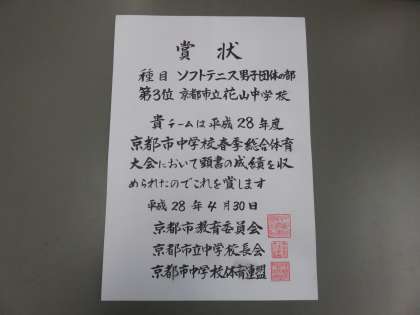 賞状
種目 ソフトテニス男子団体の部
第3位 京都市立花山中学校
貴チームは平成28年度
京都市中学校春季総合体育
大会において顕書の成績を収
められたのでこれを賞します
平成28年4月30日
京都市教育委員会
京都市立中学校長会
京都市中学校体育連盟